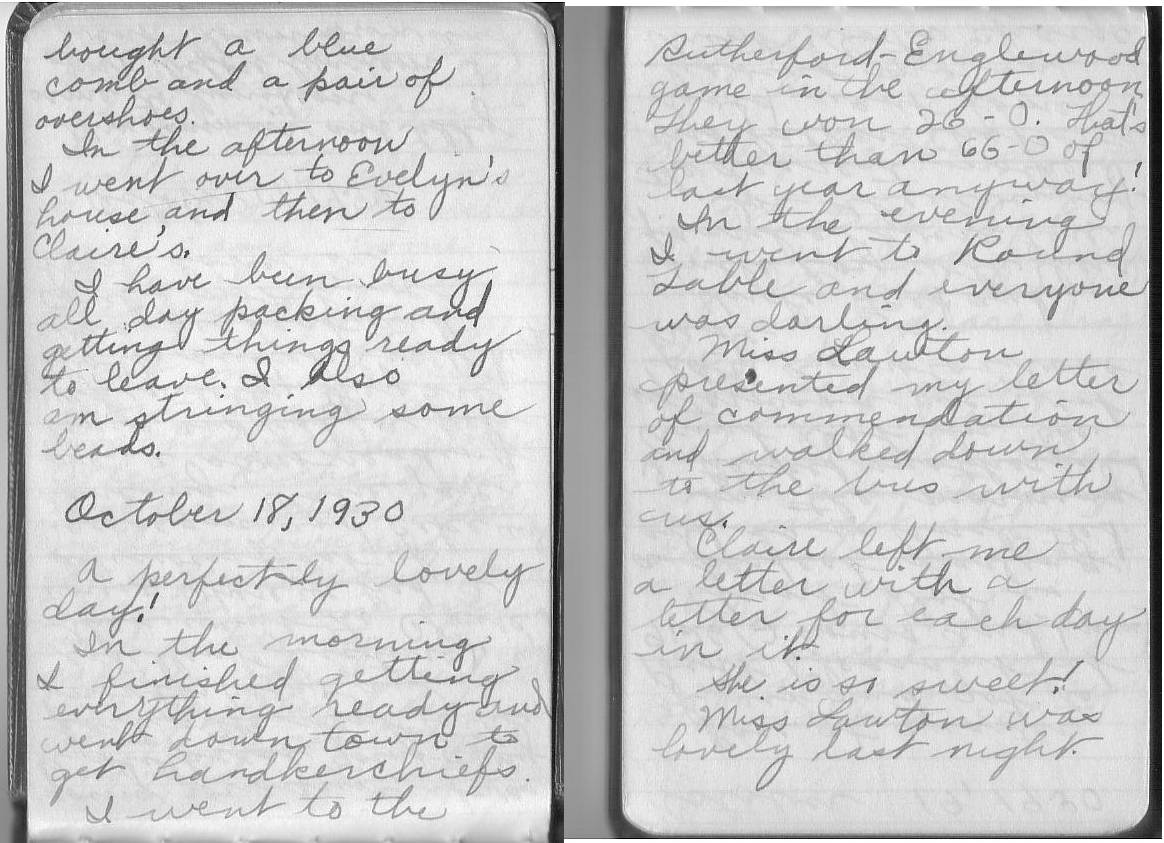 bought a blue
comb and a pair of
overshoes.
In the afternoon
I went over to Evelyn's
house and then to
Claire's.
I have been busy
all day packing and
getting things ready
to leave. I also
am stringing some
beads.
October 18, 1930
A perfectly lovely
day!
In the morning
I finished getting
everything ready and
went down town to
get handkerchiefs.
I went to the
Rutherford-Englewood
game in the afternoon
They won 26-0. That's
better than 66-0 of
last year anyway!
In the evening
I went to Round
Table and everyone
was darling.
Miss Lawton
presented my letter
of commendation
and walked down
to the bus with
us.
Claire left me
a letter with a
letter for each day
in it.
She is so sweet!
Miss Lawton was
lovely last night.